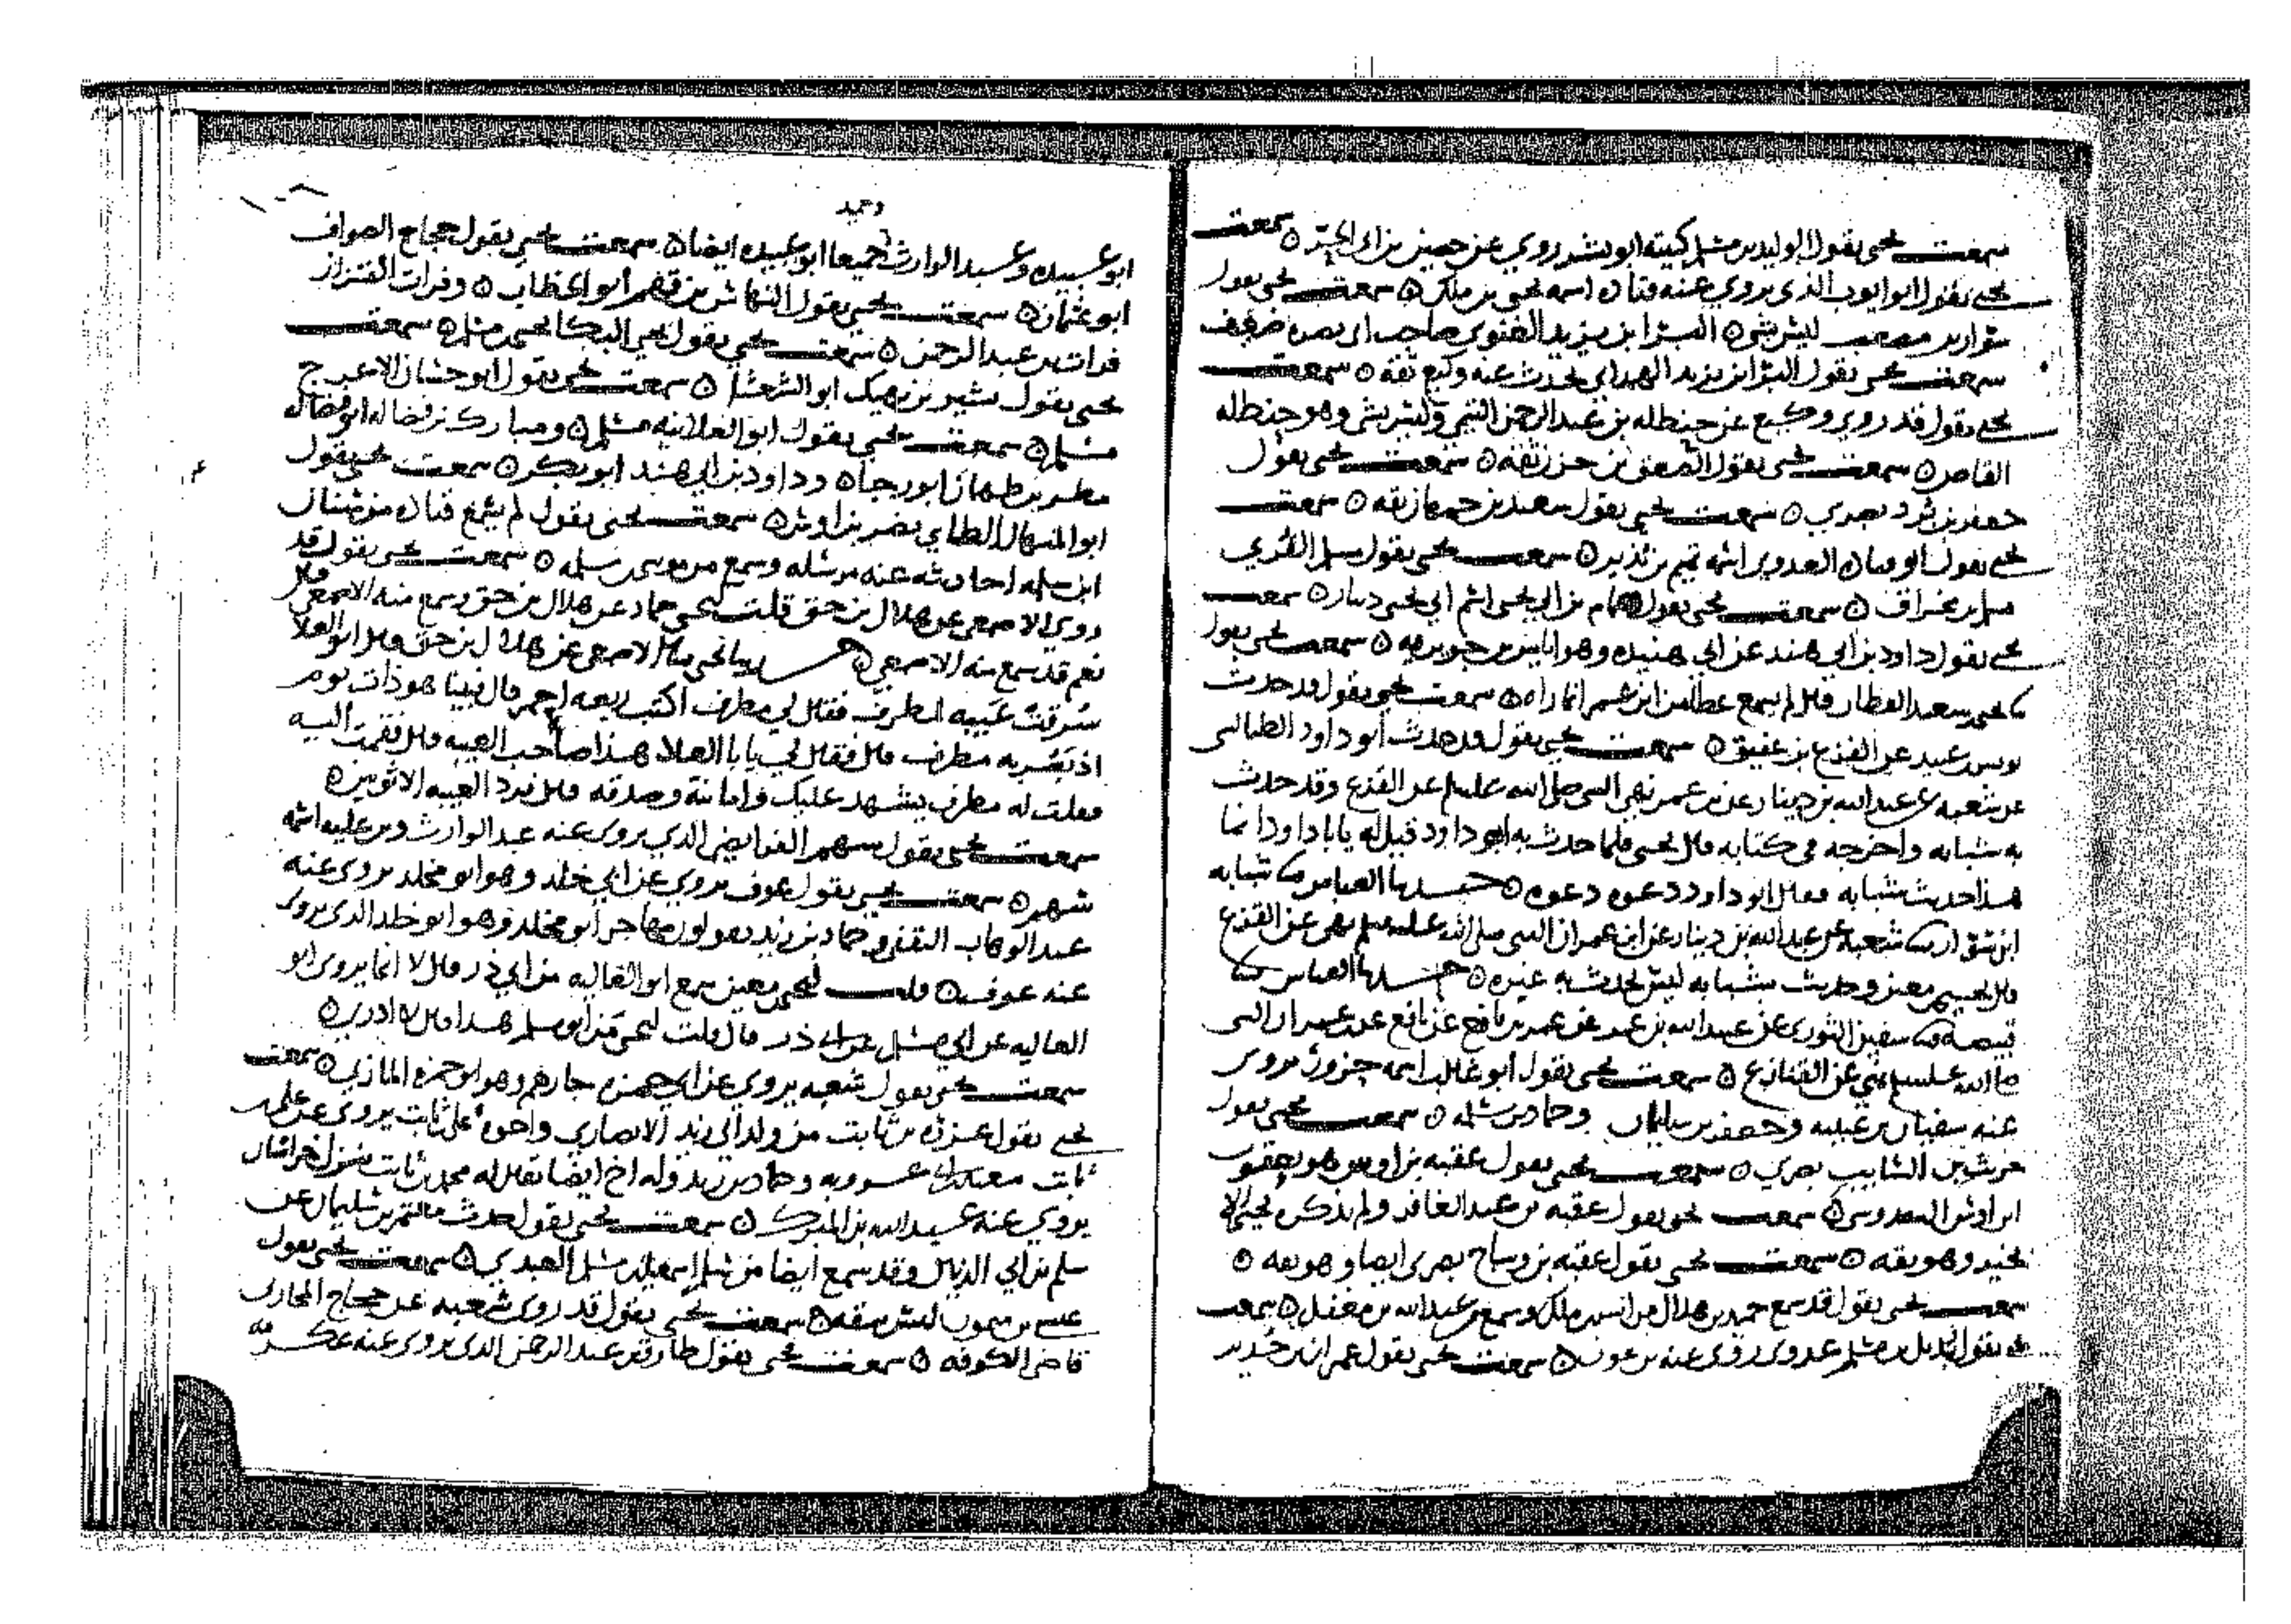 سمعت يحيى يقول الوليد بن مسلم كنيته ابو بشر روى عن حصين بن ابي الحر ه سمعت
يحيى يقول ابو ايوب الذي يروي عنه قتادة اسمه يحيى بن ملك ه سمعت يحيى يقول
سوار بن مصعب ليس بشي ه البرا بن يزيد الغنوي صاحب ابي نضرة ضعيف
سمعت يحيى يقول البرا بن يزيد الهمداني يحدث عنه وكيع ثقه ه سمعت
يحيى يقول قد روى وكيع عن حنظله بن عبد الرحمن التيمي وليس بشي وهو حنظله
القاص ه سمعت يحيى يقول الصعق بن حزن ثقه ه سمعت يحيى يقول
جعفر بن برد بصري ه سمعت يحيى يقول سعيد بن جمهان ثقه ه سمعت
يحيى يقول ابو قتادة العدوي اسمه تميم بن نذير ه سمعت يحيى يقول مسلم القري
مسلم بن مخراق ه سمعت يحيى يقول همام بن ابي يحيى اسم ابي يحيى دينار ه سمعت
يحيى يقول داود بن ابي هند عن ابي هنيده وهو اياس بن جويريه ه سمعت يحيى يقول
يحيى بن سعيد القطان قال لم يسمع عطا من ابن عمر انما راه ه سمعت يحيى يقول قد حدث
يونس بن عبيد عن الفزع بن عفيق ه سمعت يحيى يقول قد حدث ابو داود الطيالسي
عن شعبه عن عبد الله بن دينار عن بن عمر نهى النبي صلى الله عليه وسلم عن القزع وقد حدث
به شبابه واخرجه في كتابه قال يحيى فلما حدث به ابو داود قيل له يابا داود انما
هذا حديث شبابه فقال ابو داود دعوه دعوه ه حدثنا العباس شبابه
ابن سوار شعبه عن عبد الله بن دينار عن ابن عمر ان النبي صلى الله عليه وسلم نهى عن القزع
قال يحيى بن معين وحديث شبابه ليس يحدث به غيره ه حدثنا العباس
قبيصه سفين الثوري عن عبيد الله بن عمر عن عمر بن نافع عن نافع عن بن عمر ان النبي
صلى الله عليه وسلم نهى عن القنازع ه سمعت يحيى يقول ابو غالب اسمه حزور يروي
عنه سفيان بن عيينه وجعفر بن سليمان وحماد بن سلمه ه سمعت يحيى يقول
حريث بن السايب بصري ه سمعت يحيى يقول عقبه بن اوس هو يعقوب
ابن اوس السدوسي ه سمعت يحيى يقول عقبه بن عبد الغافر ولم يذكره يحيى الا
بخير وهو ثقه ه سمعت يحيى يقول عقبه بن وساج بصري ايضا وهو ثقه ه
سمعت يحيى يقول قد سمع حميد بن هلال من انس بن ملك وسمع من عبد الله بن مغفل ه سمعت
يحيى يقول بديل بن مسلم عدوي روى عنه بن عون ه سمعت يحيى يقول عمران بن حدير
ابو عبيده وعبد الوارث وحميد جميعا ابو عبيده ايضا ه سمعت يحيى يقول حجاج الصواف
ابو عثمان ه سمعت يحيى يقول النهاس بن قهم ابو الخطاب ه وفرات القزاز
فرات بن عبد الرحمن ه سمعت يحيى يقول يحيى البكا يحيى بن مسلم ه سمعت
يحيى يقول بشير بن نهيك ابو الشعثا ه سمعت يحيى يقول ابو حسان الاعرج
مسلم ه سمعت يحيى يقول ابو العلانيه مسلم ه ومبارك بن فضاله ابو فضاله
مطر بن طهمان ابو رجاه وداود بن ابي هند ابو بكر ه سمعت يحيى يقول
ابو المنهال الطاي نضر بن اوس ه سمعت يحيى يقول لم يسمع قتادة من سنان
ابن سلمه احاديثه عنه مرسله وسمع من موسى بن سلمه ه سمعت يحيى يقول قد
روى الاصمعي عن هلال بن حق قلت ليحيى حماد عن هلال بن حق وسمع منه الاصمعي قال
نعم قد سمع منه الاصمعي ه حدثنا يحيى الاصمعي عن هلال بن حق قال ابو العلا
سرقت عيبه لمطرف فقال لي مطرف اكتب ربعه احمر قال فبينا هو ذات يوم
اذ بصر به مطرف قال فقال لي يابا العلا هذا صاحب العيبه قال فقمت اليه
فقلت له مطرف يشهد عليك وامانته وصدقه قال فرد العيبه الا ثوبين ه
سمعت يحيى يقول سهم الفرايضي الذي يروي عنه عبد الوارث وبن عليه اسمه
شهر ه سمعت يحيى يقول عوف يروي عن ابي خلد وهو ابو مخلد يروي عنه
عبد الوهاب الثقفي وحماد بن زيد يقولون مهاجر ابو مخلد وهو ابو خلد الذي يروي
عنه عوف ه قلت ليحيى بن معين سمع ابو العاليه من ابي ذر قال لا انما يروي ابو
العاليه عن ابي مسلم عن ابي ذر قال قلت ليحيى من ابو مسلم هذا قال لا ادري ه
سمعت يحيى يقول شعبه يروي عن عبد الرحمن جارهم وهو ابو حمزه المازني ه سمعت
يحيى يقول عزره بن ثابت من ولد ابي زيد الانصاري واخوه علي بن ثابت يروي عن علي بن
ثابت سعيد بن ابي عروبه وحماد بن زيد وله اخ ايضا يقال له محمد بن ثابت ينزل خراسان
يروي عنه عبد الله بن المبارك ه سمعت يحيى يقول حدث معتمر بن سليمان عن
سلم بن ابي الذيال وقد سمع ايضا من اسمعيل بن مسلم العبدي ه سمعت يحيى يقول
عيسى بن ميمون ليس بثقه ه سمعت يحيى يقول قد روى شعبه عن حجاج المحاربي
قاضي الكوفه ه سمعت يحيى يقول طارق بن عبد الرحمن الذي يروي عنه عكرمه